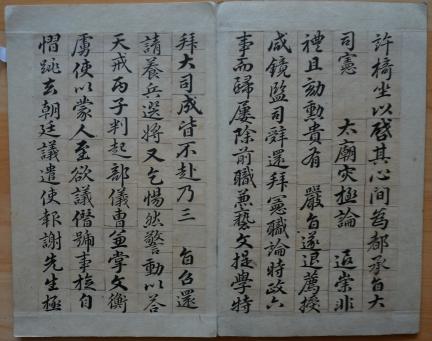 許椅坐以啓其心間爲都承旨大
司憲 太廟灾極論 追崇非
禮且劾勳貴有 嚴旨遂退薦授
咸鏡監司辭還拜憲職論時政六
事而歸屢除前職兼藝文提學特
拜大司成皆不赴乃三 旨召還
請養兵選將又乞惕然警動以答
天戒丙子判起部儀曹兼掌文衡
虜使以蒙人至欲議僭號事旋自
慴跳去朝廷議遣使報謝先生極